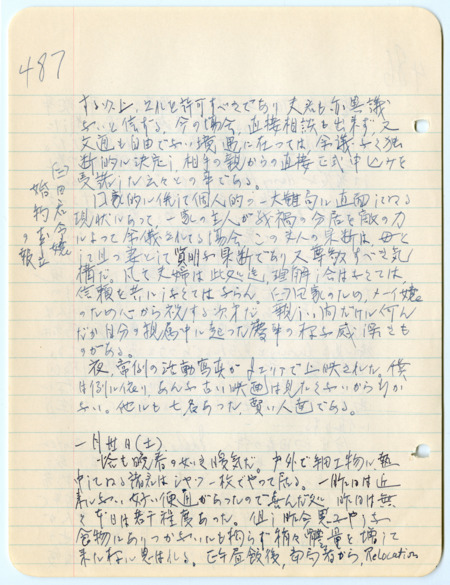 487
する以上、之ルを許可すべきであり夫君も亦異議
ないと信ずる。今の場合、直接相談も出来ず、又
交通も自由でない境遇に在つては、余議なく独
断的に決定し、相手の親からの直接正式申込みを
受諾した云々との事である。
白田君令嬢
婚約
の報
国家的に而して個人的の一大難局に直面してゐる
現状にあって、一家の主人が戦禍の為居を敵の力
によつて余儀されてる場合、この夫人の果断は母と
して且つ妻として賢明な果断であり又尊敬すべき気
構だ。凡そ夫婦は此処迄、理解し合はなくては
信頼を共にしなくてはならん。白田家のため、メイ嬢
のため心から祝する次第だ。親しい間だけに何ん
だか自分の親属中に起った慶事の様な感深きも
のがある。
夜、常例の活動写真が エリアで上映された。僕
は例に依り、あんな古い映画は見たくないから行か
ない。他にも七名あった、賢い人達である。
一月廿日(土)
恰も晩春の如き暖気だ。戸外で細工物に熱
中してゐる諸君はシャツ一枚でやって居る。一昨日は近
来にない好い便通があったので喜んだが 昨日は無
く 本日は若干程度あった。但し昨今思はしい
食物にありつかないにも拘らず稍々体量を増して
来た様に思はれる。正午昼飯後、当局者から、Relocation